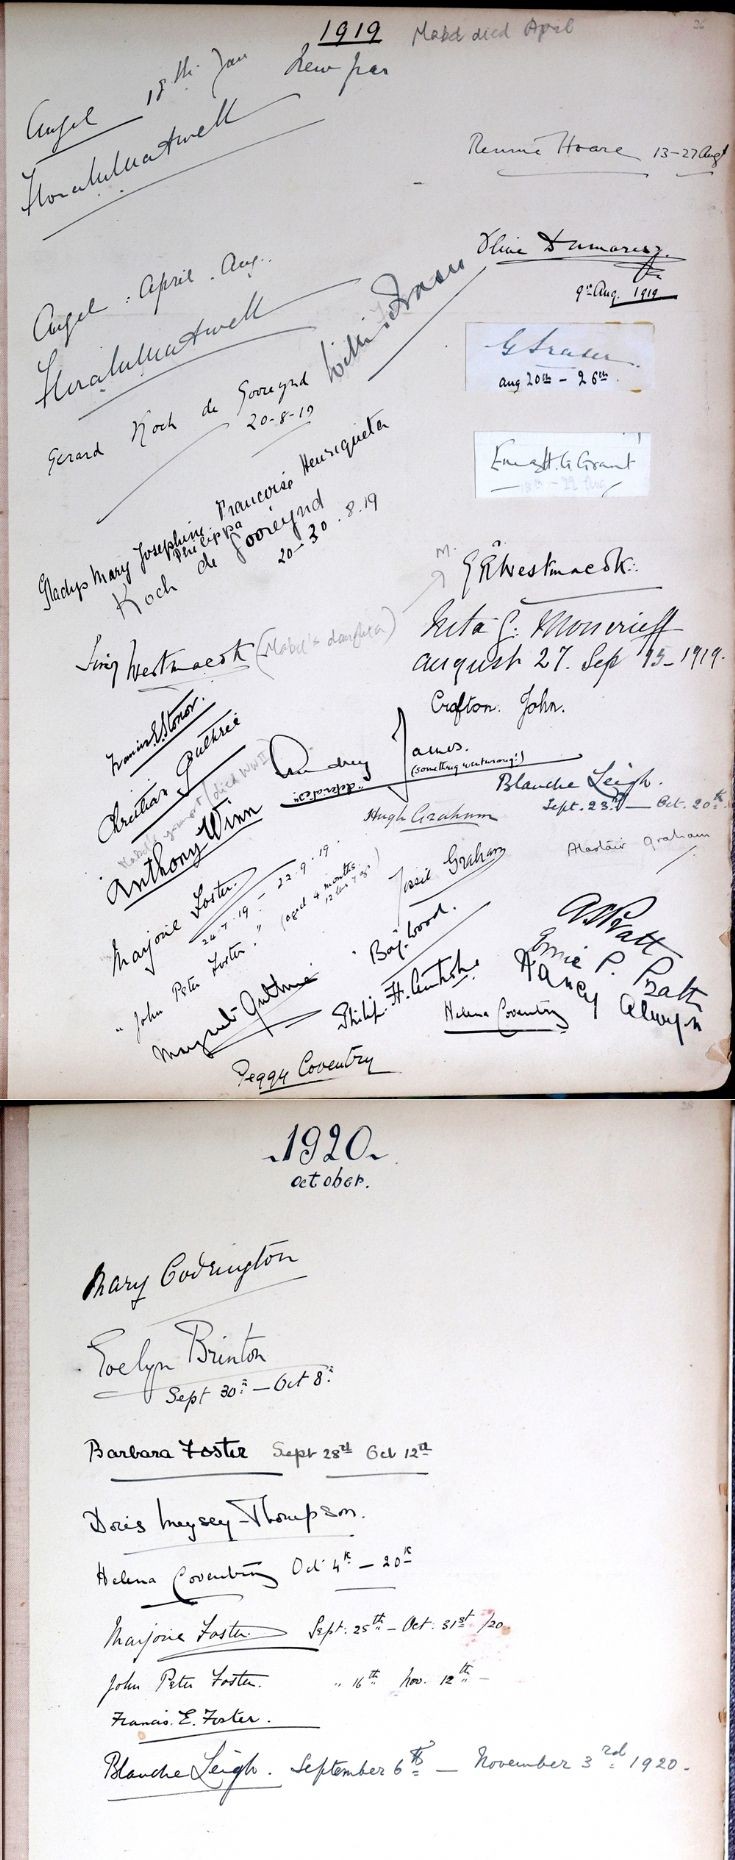 1919 Mabel died April
Angel 18th Jan New Year
Rennie Hoare 13-27 Augt
Angel . April . Aug.
Olive Dumaresq.
9th Aug. 1919
G Fraser
Aug 20th - 26th.
Gerard Koch de Gooreynd
20-8-19
Grant
Gladys Mary Josephine Françoise Henriqueta
Philippa
Koch de Gooreynd
20-30.8.19
M.
G R Westmacott.
Westmacott (Mabel's daughter)
G. Moncrieff
August 27. Sep 15-1919.
Crofton John.
Francis E. Stonor.
Christian Guthrie
Audrey James.
"depravèd" (something wentwrong!)
Blanche Leigh.
Sept. 23rd — Oct. 20th
Anthony Winn
Hugh Graham
Alastair Graham
Marjorie Foster.
24.7.19 - 22.9.19.
Jessie Graham
"John Peter Foster." (aged 4 months
A S Pratt
Ernie P. Pratt
Nancy Alwyn
Margaret Guthrie
Wood.
Philip. H.
Helena Coventry
Peggy Coventry
1920
October.
Mary Codrington
Evelyn Brinton
Sept 30th — Oct 8th
Barbara Foster Sept 28th Oct 12th
Doris Meysey-Thompson.
Helena Coventry Oct 4th — 20th
Marjorie Foster. Sept. 25th — Oct. 31st /20.
John Peter Foster. " 16th Nov. 12th —
Francis. E. Foster.
Blanche Leigh. September 6th — November 3rd 1920.